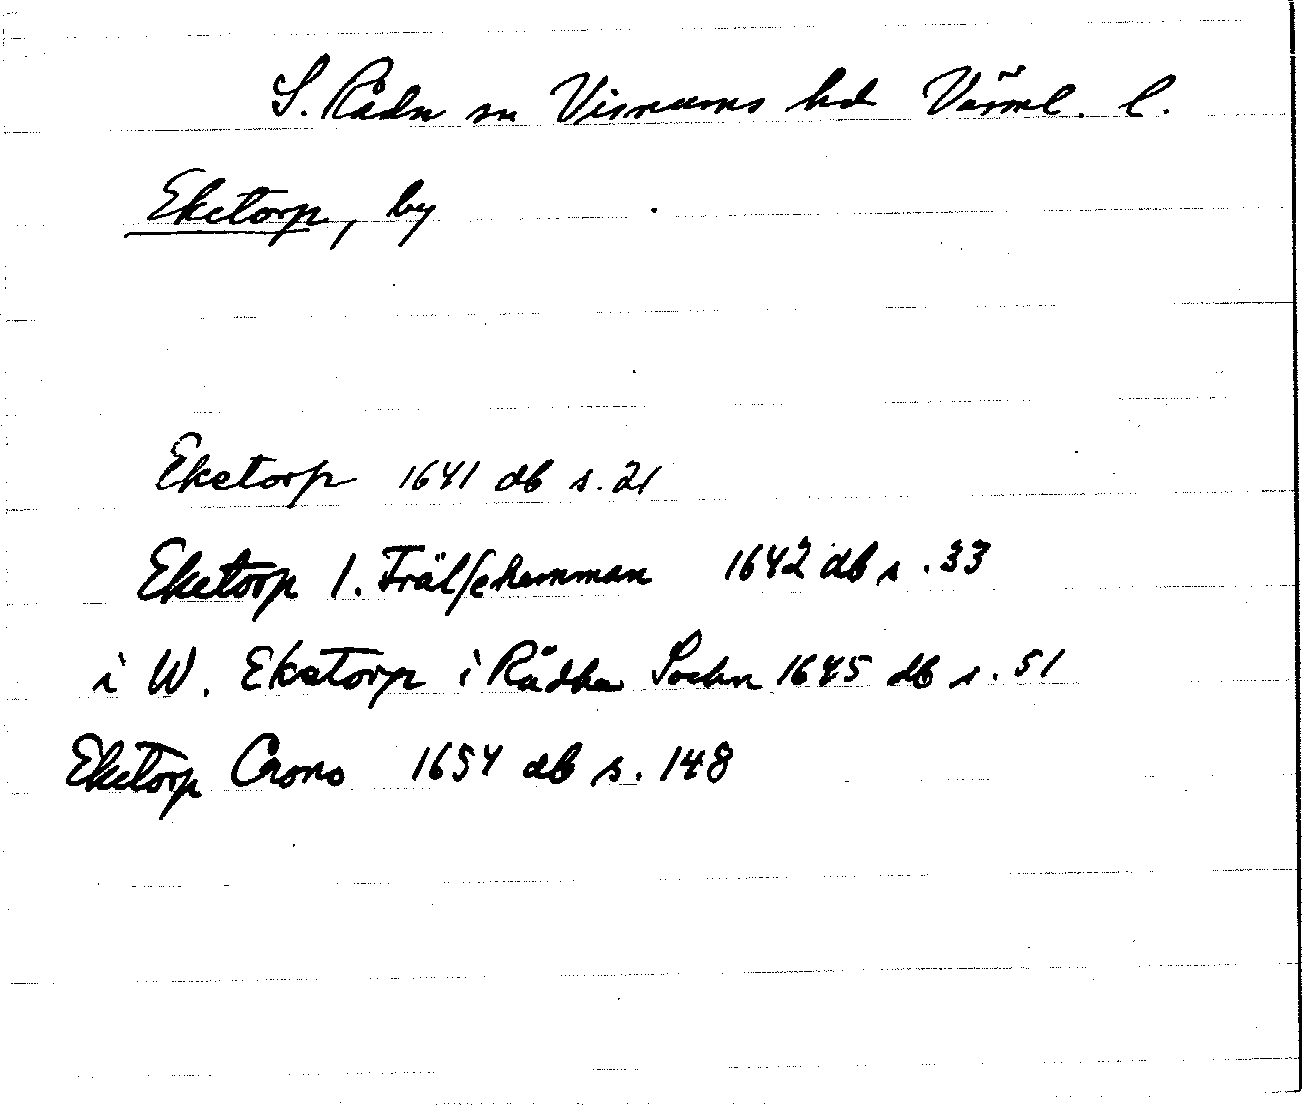 S. Råda sn Visnums hd Värml. l.
Eketorp, by
Eketorp 1641 db s. 21
Eketorp 1. Frälsehemman 1642 db s. 33
i W. Ekatorp i Rådha Sochn 1645 db s. 51
Eketorp Crono 1654 db s. 148